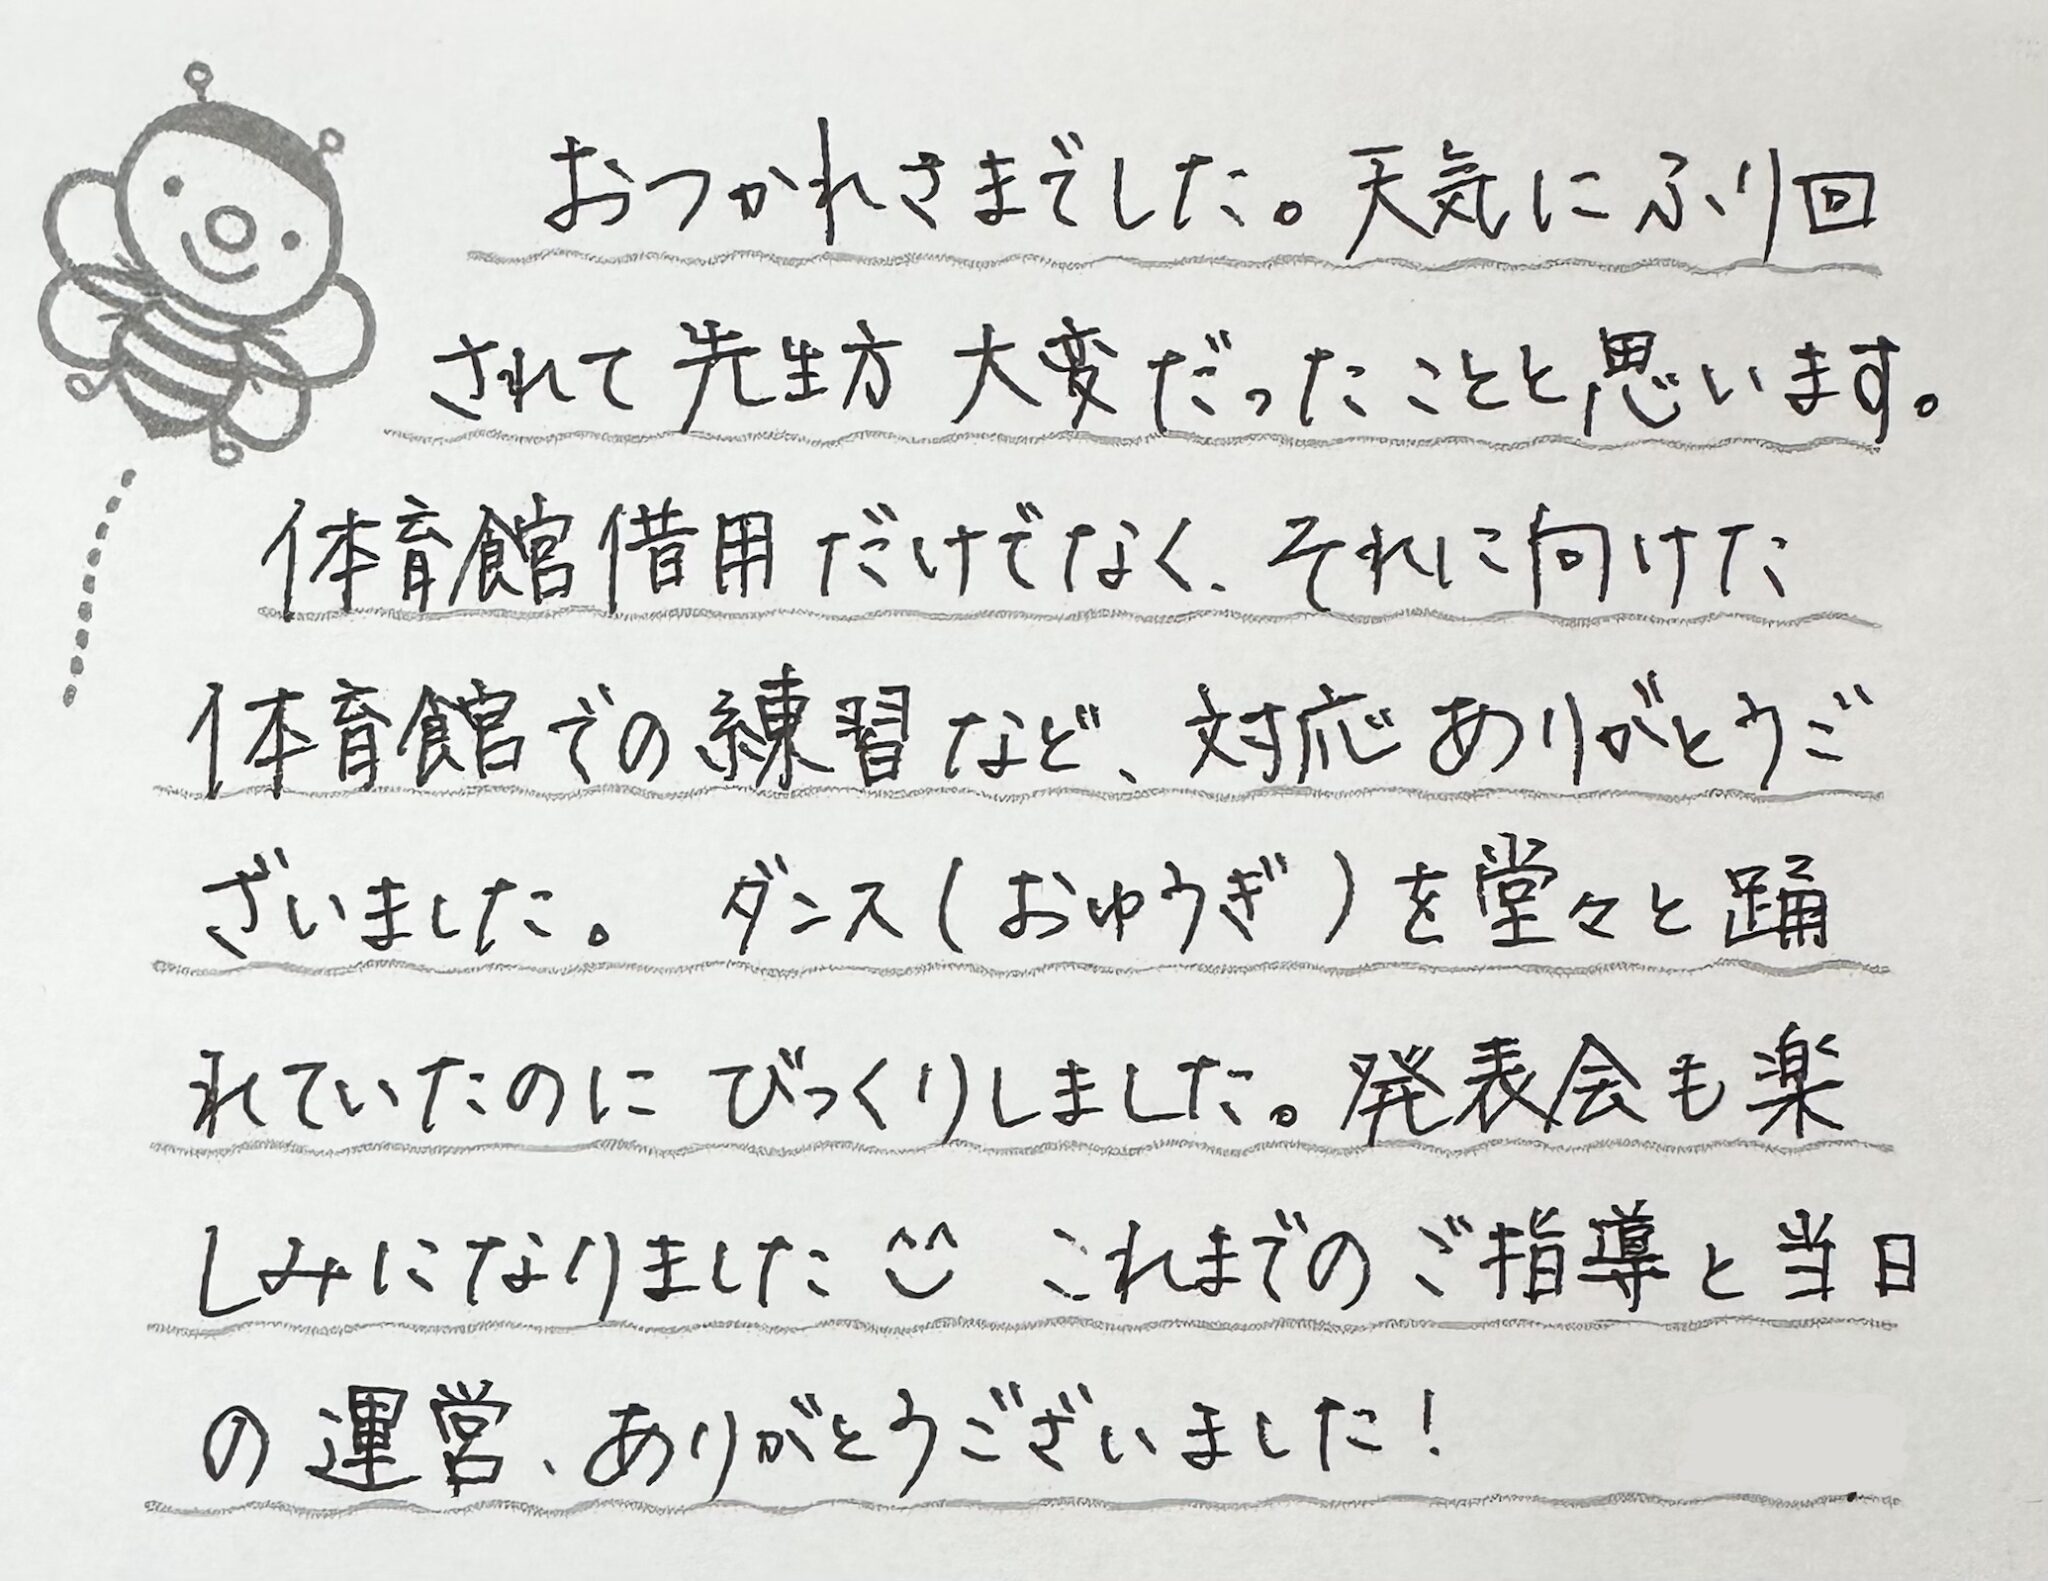 おつかれさまでした。天気にふり回
されて先生方 大変だったことと思います。
体育館借用だけでなく、それに向けた
体育館での練習など、対応ありがとうご
ざいました。 ダンス(おゆうぎ)を堂々と踊
れていたのにびっくりしました。発表会も楽
しみになりました^^ これまでのご指導と当日
の運営、ありがとうございました!